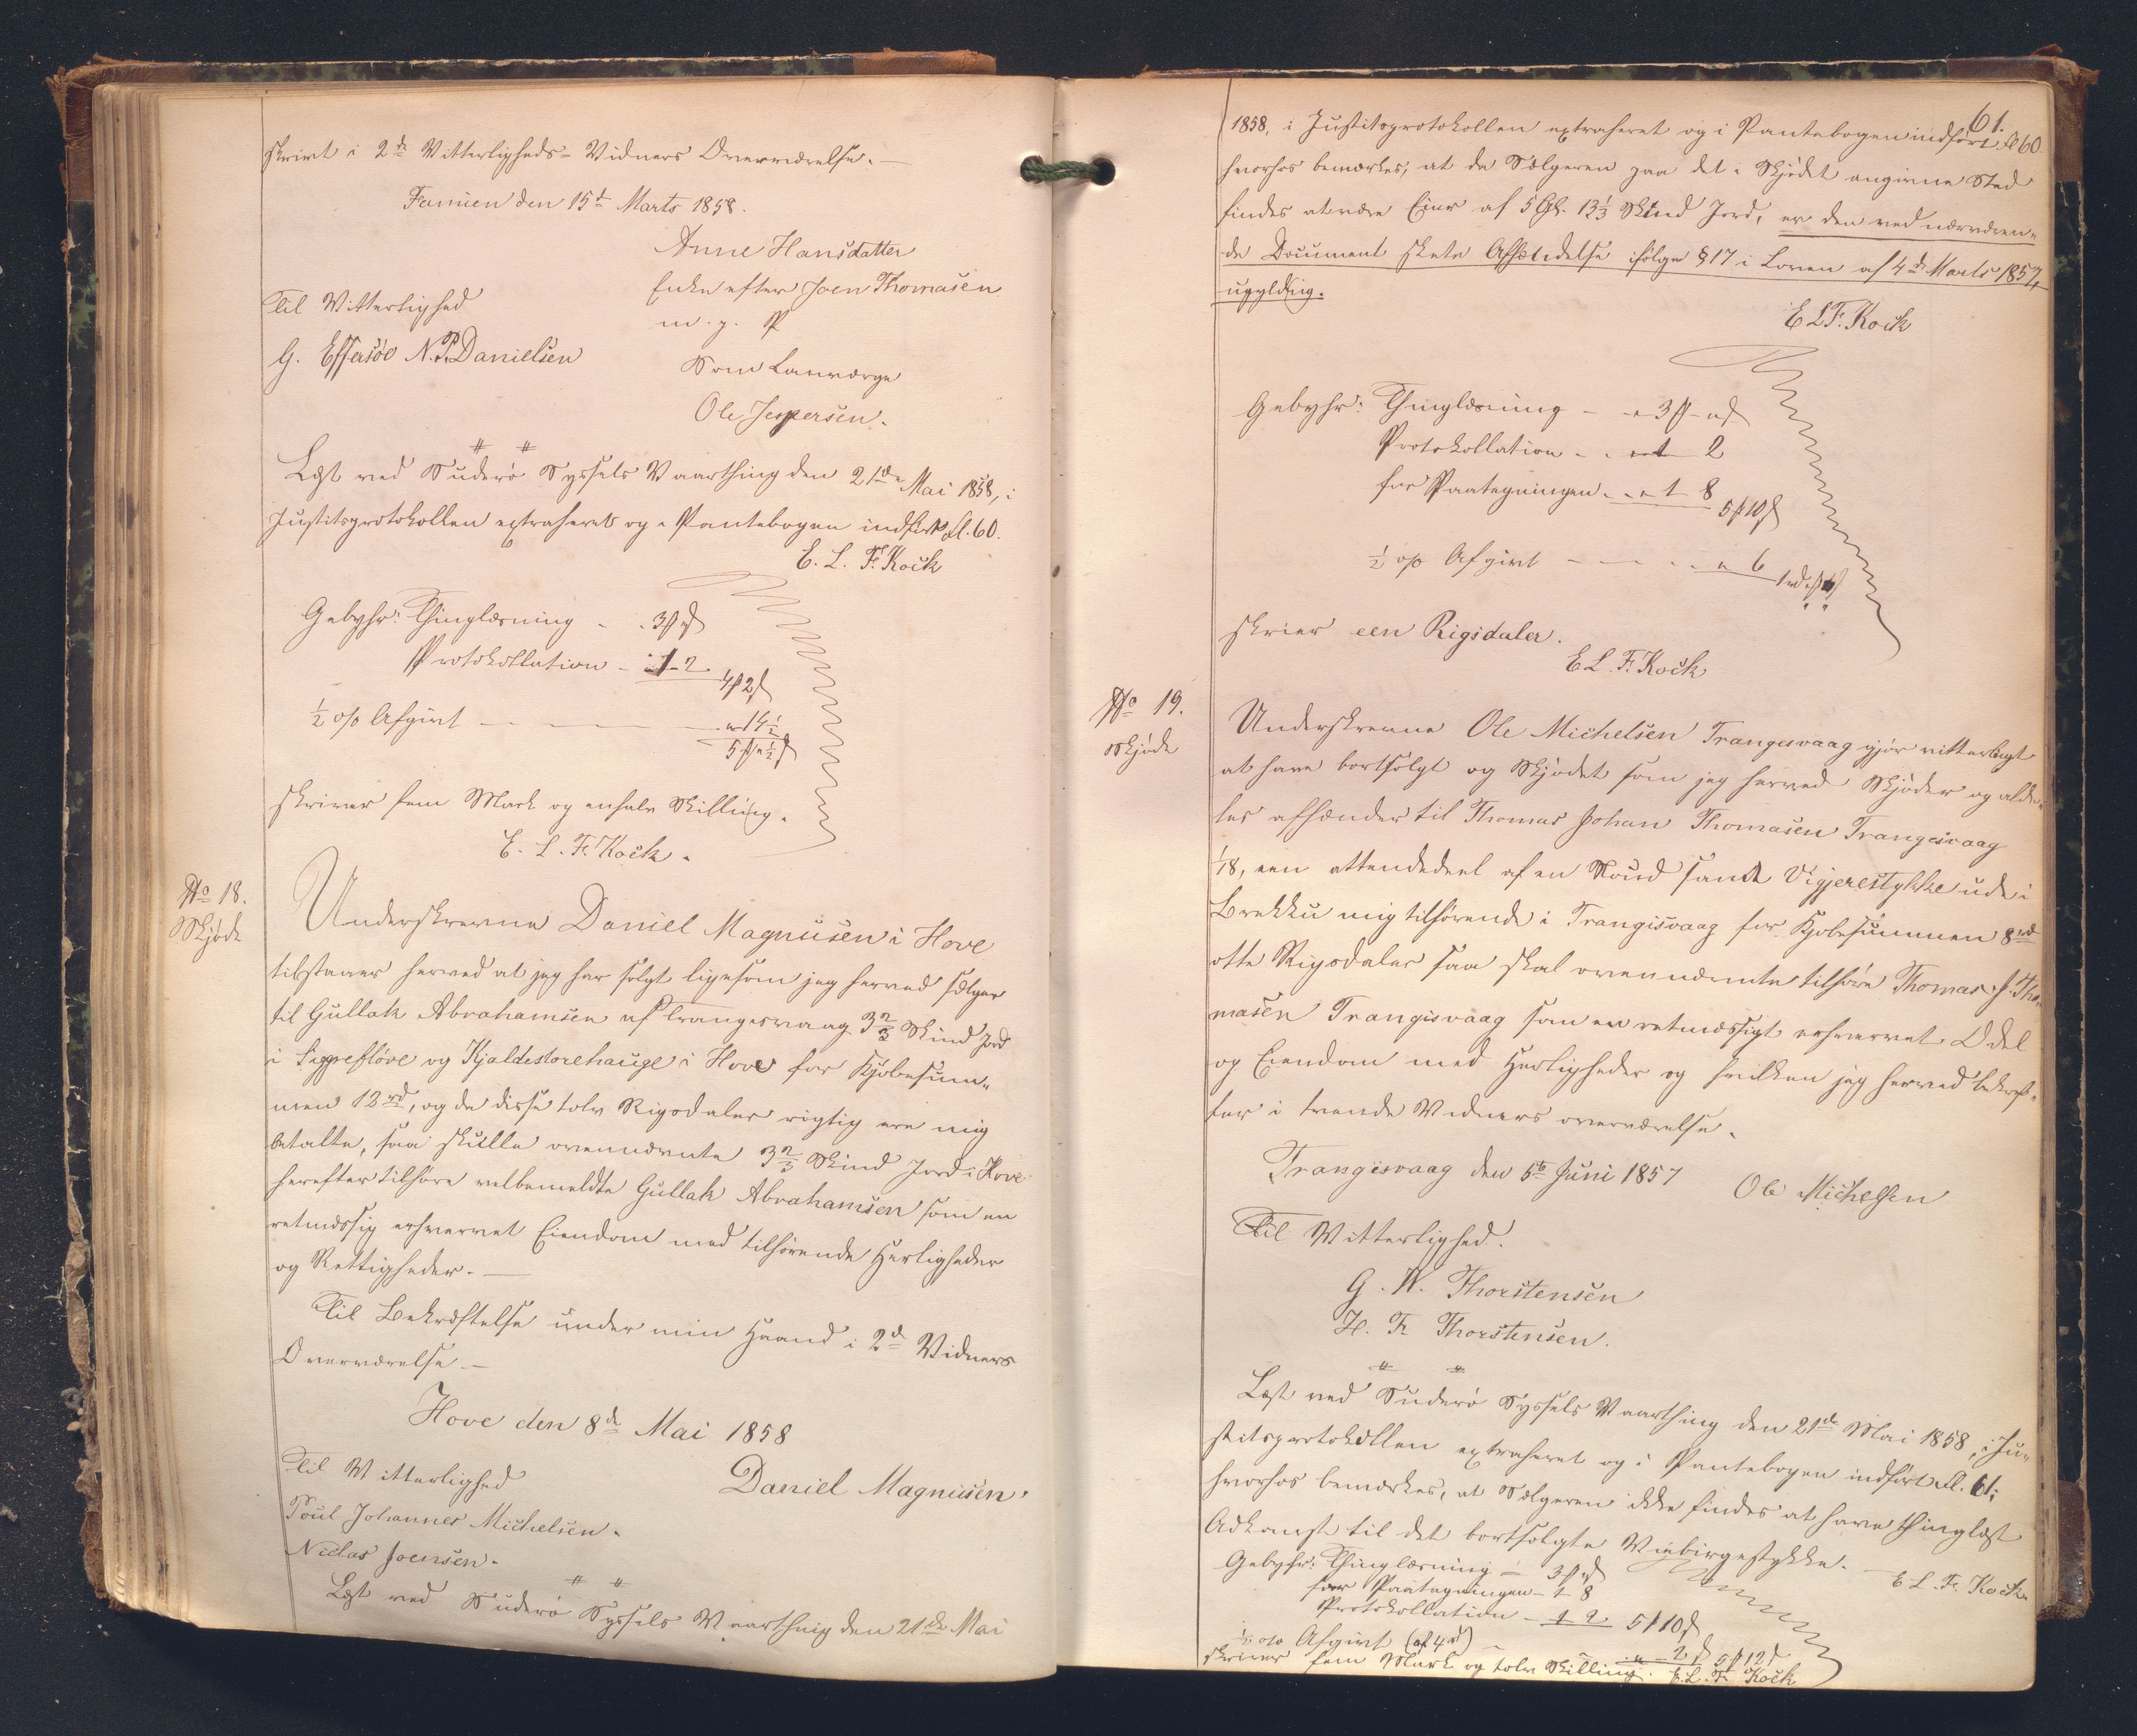 skrivt i 2de Vitterligheds-Vidners Overværelse. —
Famien den 15de Marts 1858.
Anne Hansdatter
Enke efter Joen Thomasen
m. p. P
Til Vitterlighed
G. Effersöe N. P. Danielsen
Som Lauværge
Ole Jespersen.
Læst ved Suderö Syssels Vaarthing den 21de Mai 1858, i
Justitsprotokollen extraheret og i Pantebogen indfört Fol. 60.
E. L. F. Kock
Gebyhr: Thinglæsning - . 3
Protokollation - " 1 - 2
4 2
1/2 o/o Afgivt - - - " 14 1/2
5 " 1/2
skriver fem Mark og en halv Skilling.
E. L. F. Kock.
No 18.
Skjöde
Underskrevne Daniel Magnusen i Hove
tilstaaer herved at jeg har solgt ligesom jeg herved sælger
til Gullak Abrahamsen af Trangesvaag 3 2/3 Skind Jord
i Siggreflöve og Kjaldestorehauge i Hove for Kjöbesum-
men 12 rd, og da disse tolv Rigsdaler rigtig ere mig
betalte, saa skulle ovennævnte 3 2/3 Skind Jord i Hove
herefter tilhöre velbemeldte Gullak Abrahamsen som en
retmæssig erhvervet Eiendom med tilhörende Herligheder
og Rettigheder. —
Til Bekræftelse under min Haand i 2de Vidners
Overværelse. —
Hove den 8de Mai 1858
Til Vitterlighed
Daniel Magnusen.
Poul Johannes Michelsen.
Niclas Joensen.
Læst ved Suderö Syssels Vaarthing den 21de Mai
61.
1858, i Justitsprotokollen extraheret og i Pantebogen indfört Fol. 60
hvorhos bemærkes, at da Sælgeren paa det i Skjödet angivne Sted
findes at være Eier af 5 Gl. 13 1/3 Skind Jord, er den ved nærværen-
de Document skete Afhændelse ifölge § 17 i Loven af 4de Marts 1857
ugyldig.
E L F. Kock
Gebyhr: Thinglæsning - " 3 - "
Protokollation - . " 1 2
for Paategningen . " 1 8
5 10
1/2 o/o Afgivt - - - " 6
1 rd " "
skriver een Rigsdaler.
E L. F. Kock
No 19.
Skjöde
Underskrevne Ole Michelsen Trangesvaag gjör vitterligt
at have bortsolgt og Skjödet som jeg herved Skjöder og alde-
les afhænder til Thomas Johan Thomasen Trangesvaag
1/8, een ottendedeel af en Noud samt Vigjerestykke ude i
Brekku mig tilhörende i Trangisvaag for Kjöbesummen 8 rd
otte Rigsdaler saa skal ovennævnte tilhöre Thomas J. Tho-
masen Trangisvaag som en retmæssigt erhvervet Odel
og Eiendom med Herligheder og hvilken jeg herved bekræf-
ter i tvende Vidners overværelse.
Trangisvaag den 5te Juni 1857
Ole Michelsen
Til Vitterlighed.
G. W. Thorstensen
H. Fr Thorstensen.
Læst ved Suderö Syssels Vaarthing den 21de Mai 1858, i Ju-
stitsprotokollen extraheret og i Pantebogen indfört Fol. 61;
hvorhos bemærkes, at Sælgeren ikke findes at have thinglæst
Adkomst til det bortsolgte Viebirgestykke. —
E L. Fr. Kock
Gebyhr: Thinglæsning - 3 "
for Paategningen - 1 8
Protokollation - 1 2 5 10
1/2 o/o Afgivt (af 4 rd) - " - 2 5 12
skriver fem Mark og tolv Skilling. E. L. Fr. Kock